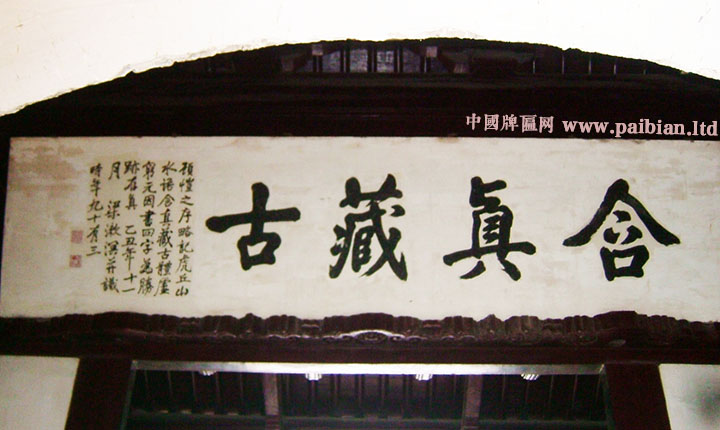 中國牌匾网 www.paibian.ltd
含真藏古
頋愷之序略記虎丘山
水語含真藏古體虛
窮元因書四字為勝
跡存真 乙丑年十一
月 梁漱溟并識
時年九十有三